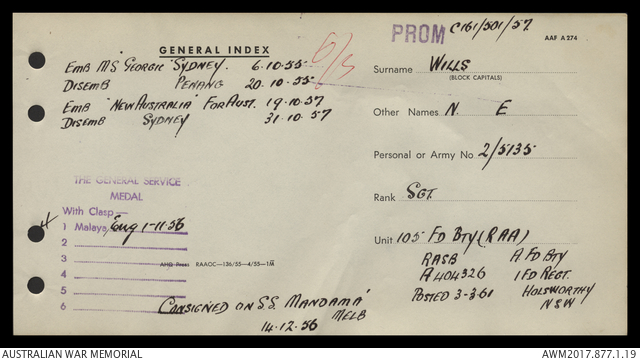 PROM C161/501/57
AAF A 274
GENERAL INDEX
EMB M.S. GEORGIC SYDNEY. 6.10.55
DISEMB PENANG 20.10.55
EMB "NEW AUSTRALIA" FOR AUST. 19.10.57
DISEMB SYDNEY 31.10.57
Surname WILLS
(BLOCK CAPITALS)
Other Names N. E
Personal or Army No 2/5135
Rank SGT.
Unit 105 FD BTY (RAA)
RASB A FD BTY
A404326 1 FD REGT.
POSTED 3-3-61 HOLSWORTHY
NSW
THE GENERAL SERVICE
MEDAL
With Clasp—
1 Malaya, Eng 1-11-56
2
3
4
5
6
AHQ Press RAAOC—136/55—4/55—1M
CONSIGNED ON S.S. MANDAMA'
MELB
14.12.56
AUSTRALIAN WAR MEMORIAL
AWM2017.877.1.19